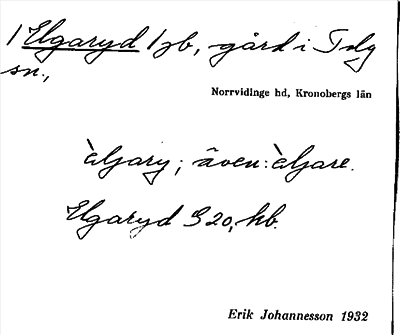 1 Elgaryd 1 jb, gård i Tolg
sn.,
Norrvidinge hd, Kronobergs län
èljary; även: èljare.
Elgaryd G 20, kb.
Erik Johannesson 1932